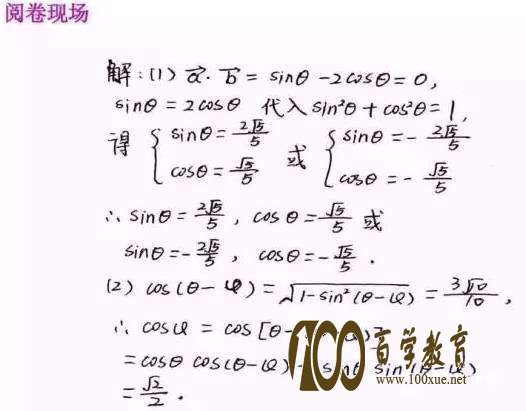 阅卷现场
解:(1) a⃗·b⃗ = sinθ -2cosθ = 0,
sinθ = 2cosθ 代入 sin²θ + cos²θ = 1,
得 { sinθ = 2√5/5 cosθ = √5/5 或 { sinθ = - 2√5/5 cosθ = - √5/5
∴ sinθ = 2√5/5 , cosθ = √5/5 或
sinθ = - 2√5/5 , cosθ = - √5/5 .
(2) cos(θ-φ) = √(1-sin²(θ-φ)) = 3√10/10 ,
∴ cosφ = cos[θ-
= cosθ cos(θ-φ)
= √2/2 .
100百学教育
www.100xue.net